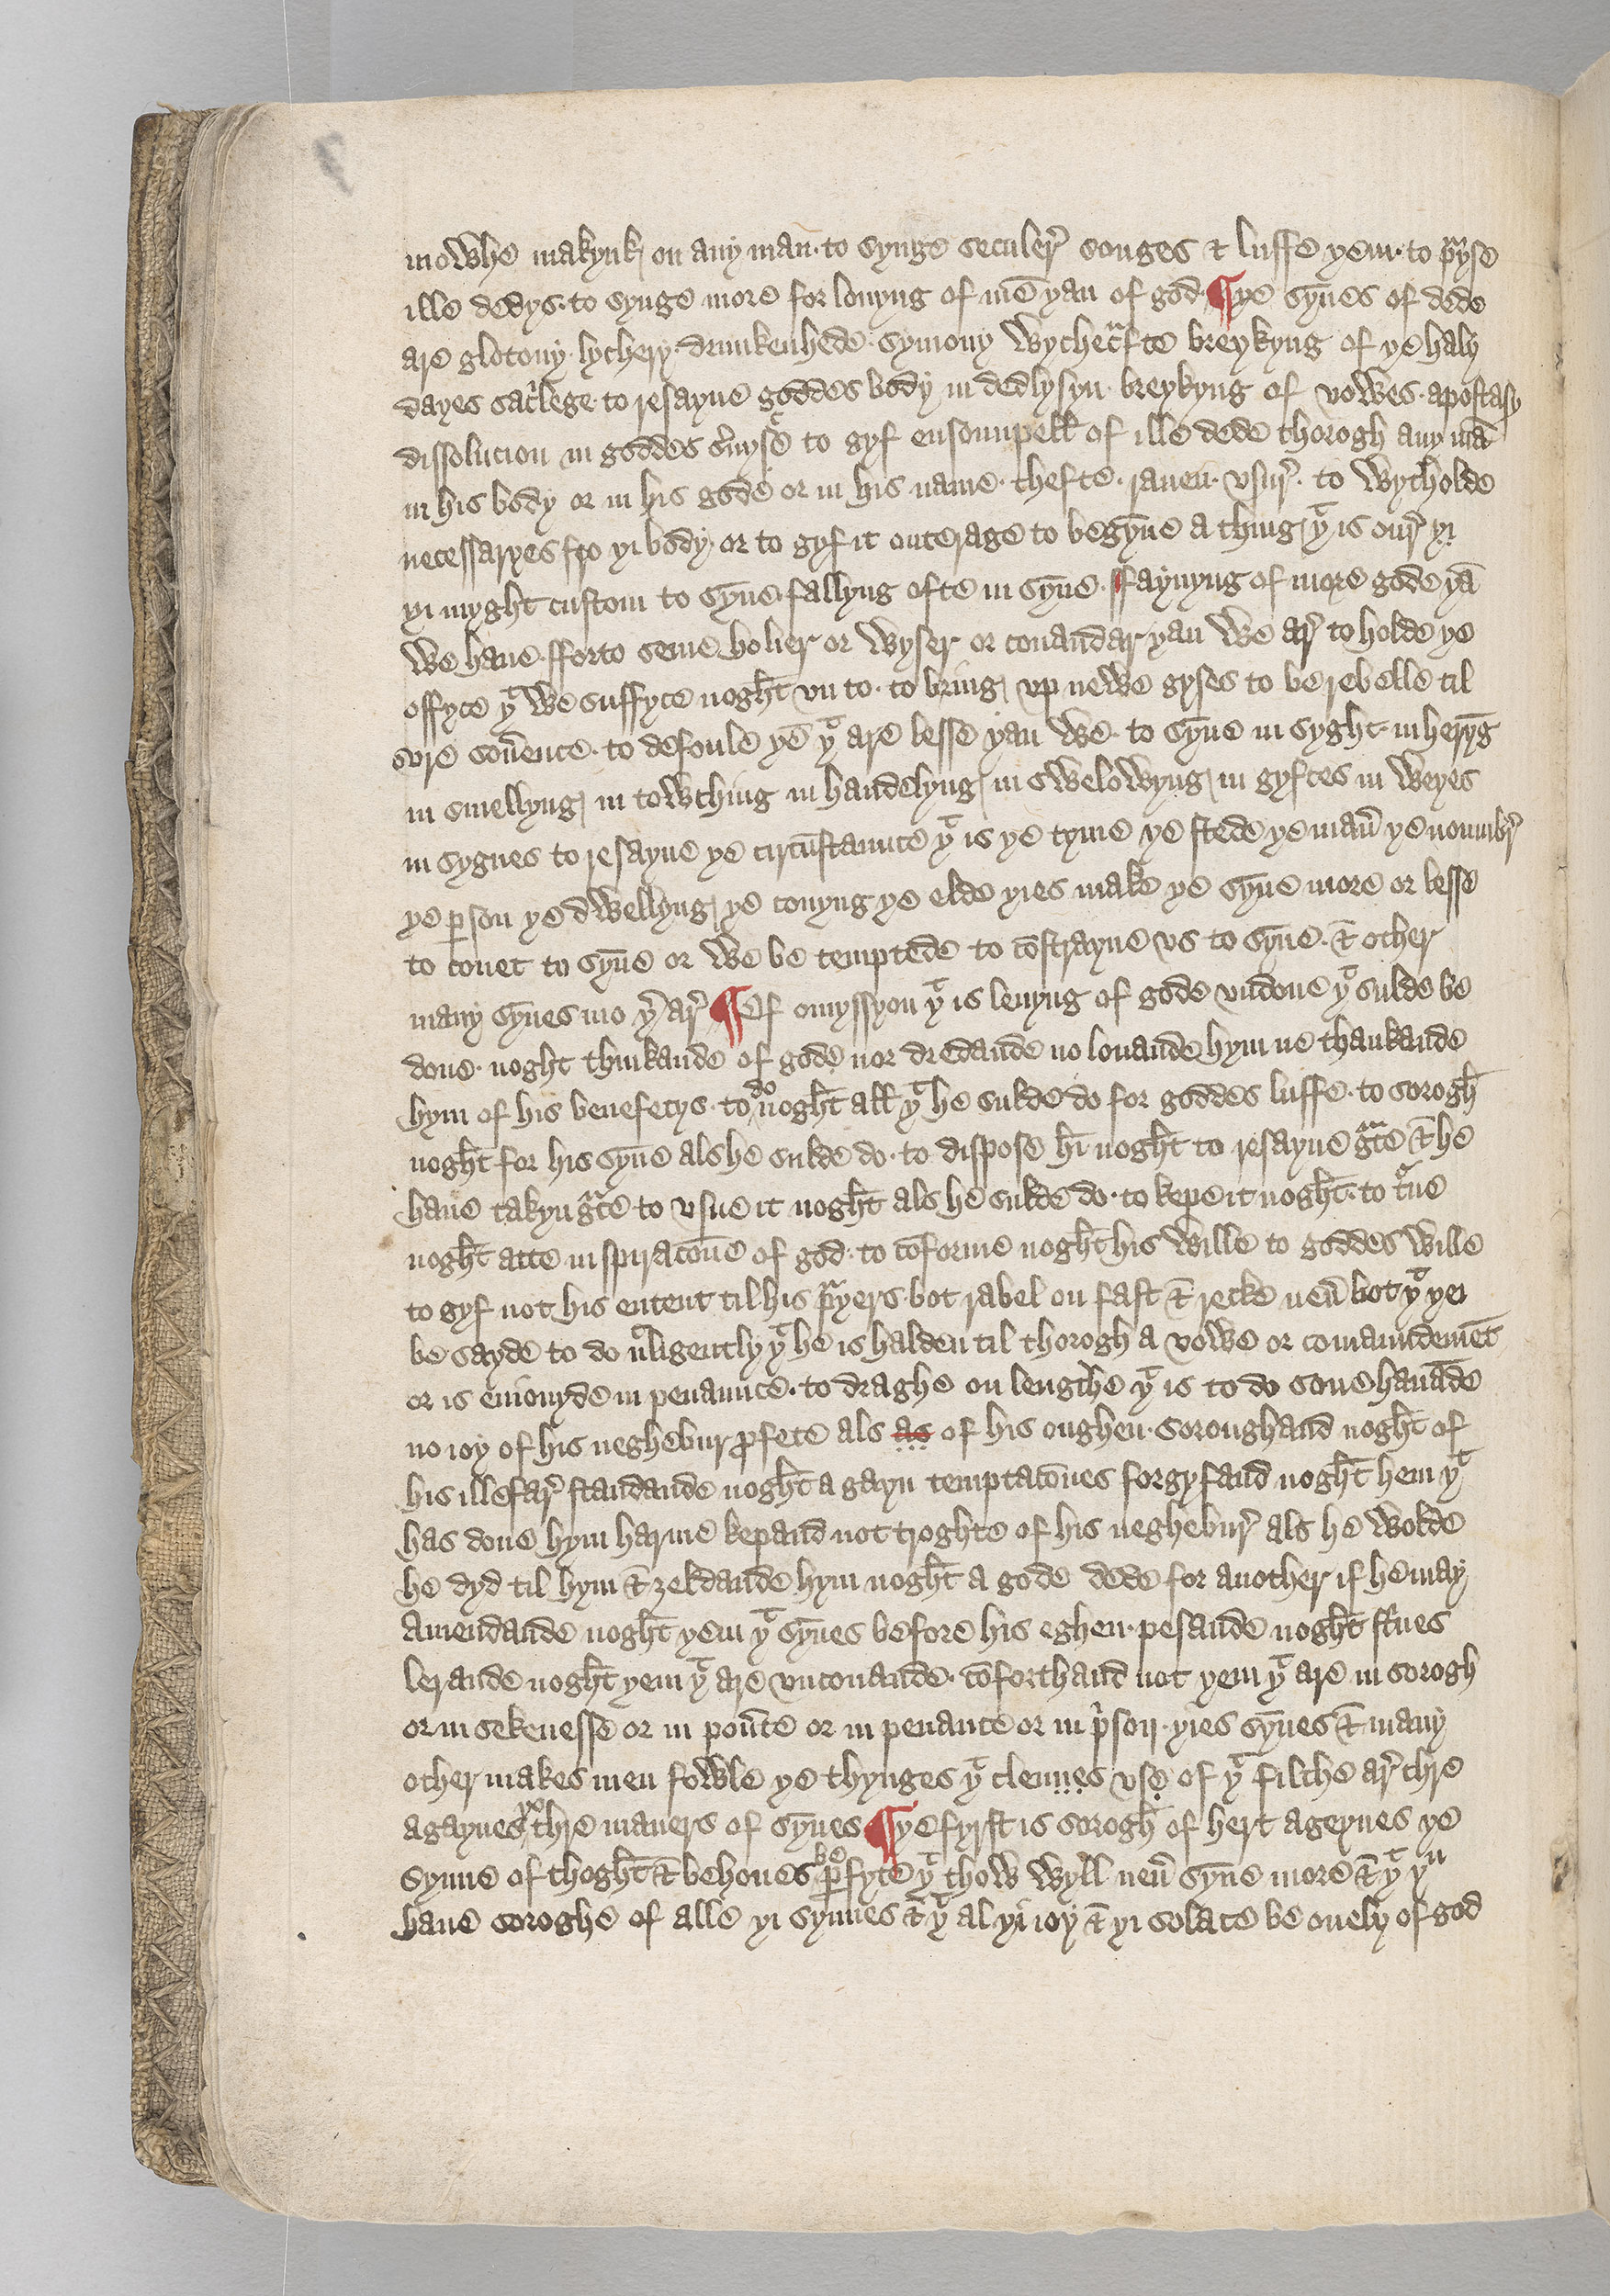 mowhe makynk on any man · to synge seculer songes & luffe yem · to prayse
ille dedys · to synge more for louyng of mē yan of god · ¶ ye syn̄es of dede
are glotony · lychery · drunkenhede · symony wychecrafte breykyng of ye haly
dayes sacrlege · to resayue goddes body in dedly syn · breykyng of vowes · apostasy
dissolucion in goddes seruyse to gyf ensoumpell of ille dede thorogh any mā
in his body or in his gode or in his name · thefte · rauen · vsur · to wytholde
necessaryes fro yi body · or to gyf it outerage to begyn̄e a thing yt is our yi
yi myght custom to syn̄e · fallyng ofte in syn̄e · ffaynyng of more gode yā
we haue · fforto seme holier or wyser or conandar yan we ar to holde ye
offyce yt we suffyce noght vn to · to bring vp newe gyses to be rebelle til
ovre souerence · to defoule yē yt are lesse yan we · to syn̄e in syght · in heryg
in smellyng in towching in handelyng in swelowyng in gyftes in weyes
in sygnes to resayue ye circūstaunce yt is ye tyme ye stede ye man̄ ye noumbr
ye person ye dwellyng ye conyng ye elde yies make ye syn̄e more or lesse
to couet to syn̄e or we be temptede to cōstrayne vs to syn̄e · & other
many syn̄es mo yer ar ¶ Of omyssyon yt is leuyng of gode vndone yt sulde be
done · noght thinkande of gode nor dredande no louande hym ne thankande
hym of his benefetys · to do noght all yt he sulde do for goddes luffe · to sorogh
noght for his syn̄e als he sulde do · to dispose hī noght to resayue grace & he
haue takyn grace to vsue it noght als he sulde do · to kepe it noght · to turne
noght atte inspiracōne of god · to cōforme noght his wille to goddes wille
to gyf not his entent til his prayers · bot rabel on fast & recke neuer bot yt yei
be sayde to do necligently yt he is halden til thorogh a vowe or comaundemēt
or is enionyde in penaunce · to draghe on lengthe yt is to do sone hauāde
no ioy of his neghebur profete als as of his oughen · soroughand noght of
his ille far standande noght a gayn temptacōnes forgyfand noght hem yt
has done hym harme kepand not troghte of his neghebur als he wolde
he dyd til hym & zeldande hym noght a gode dede for another if he may
Amendande noght yem yt syn̄es before his eghen · pesande noght stryues
lerande noght yem yt are vnconande · cōforthand not yem yt are in sorogh
or in sekenesse or in pouerte or in penance or in prison · yies syn̄es & many
other makes men fowle ye thynges yt clennes vse of yt filthe ar thre
agaynes yo thre maners of syn̄es ¶ ye fyrst is sorogh of hert ageynes ye
synne of thoght & behoues be perfyte yt thow wyll neuer syn̄e more & yt yu
haue soroghe of alle yi synnes & yt al yi ioy & yi solace be onely of god